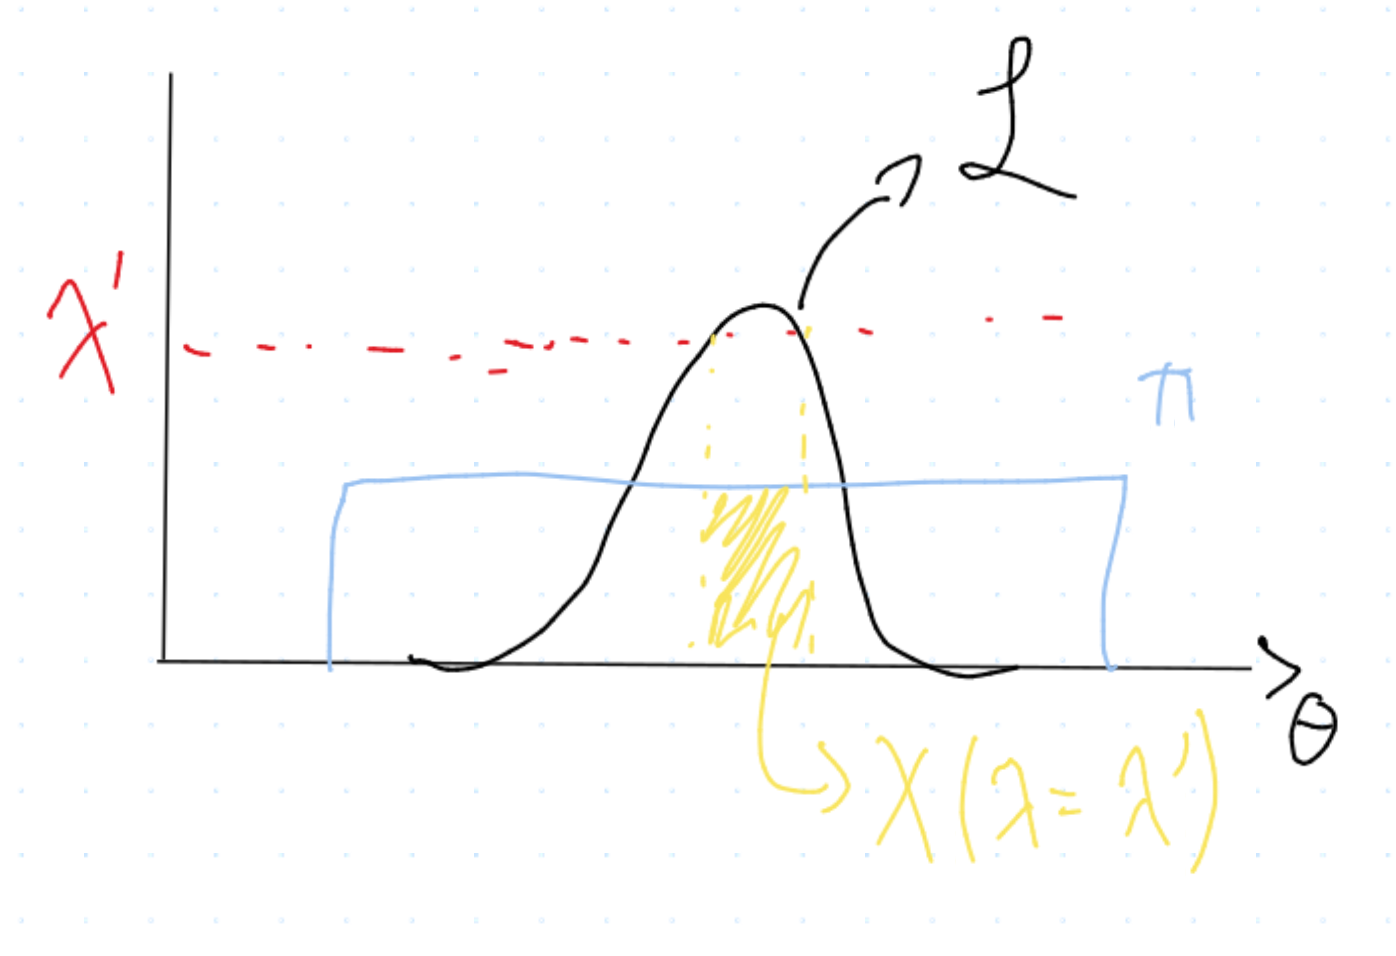 ℒ
λ'
π
θ
X(λ = λ')